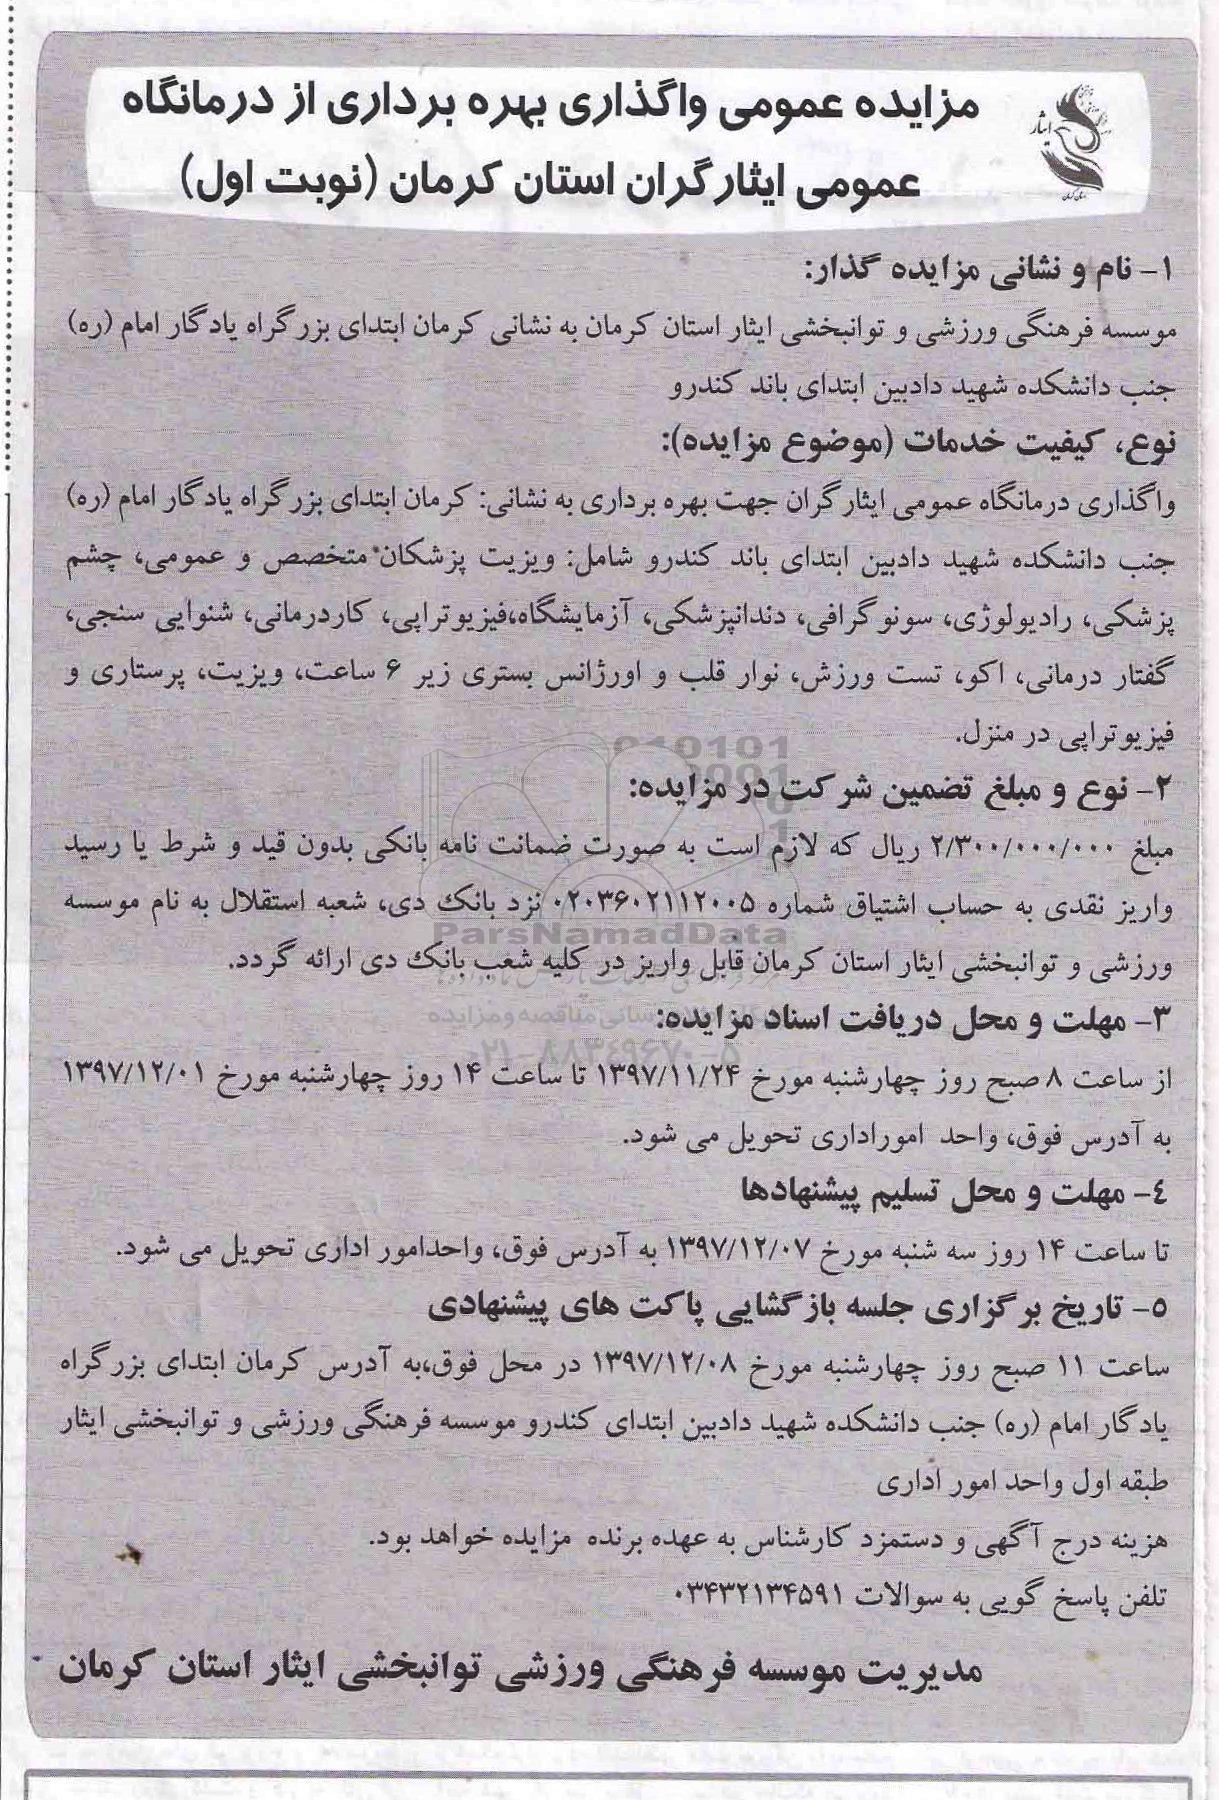 مزایده عمومی واگذاری بهره برداری از درمانگاه
عمومی ایثارگران استان کرمان (نوبت اول)
ایثار
استان کرمان
۱- نام و نشانی مزایده گذار:
موسسه فرهنگی ورزشی و توانبخشی ایثار استان کرمان به نشانی کرمان ابتدای بزرگراه یادگار امام (ره)
جنب دانشکده شهید دادبین ابتدای باند کندرو
نوع، کیفیت خدمات (موضوع مزایده):
واگذاری درمانگاه عمومی ایثارگران جهت بهره برداری به نشانی: کرمان ابتدای بزرگراه یادگار امام (ره)
جنب دانشکده شهید دادبین ابتدای باند کندرو شامل: ویزیت پزشکان متخصص و عمومی، چشم
پزشکی، رادیولوژی، سونوگرافی، دندانپزشکی، آزمایشگاه،فیزیوتراپی، کاردرمانی، شنوایی سنجی،
گفتار درمانی، اکو، تست ورزش، نوار قلب و اورژانس بستری زیر ۶ ساعت، ویزیت، پرستاری و
فیزیوتراپی در منزل.
۲- نوع و مبلغ تضمین شرکت در مزایده:
مبلغ ۲/۳۰۰/۰۰۰/۰۰۰ ریال که لازم است به صورت ضمانت نامه بانکی بدون قید و شرط یا رسید
واریز نقدی به حساب اشتیاق شماره ۰۲۰۳۶۰۲۱۱۲۰۰۵ نزد بانک دی، شعبه استقلال به نام موسسه
ParsNamadData
ورزشی و توانبخشی ایثار استان کرمان قابل واریز در کلیه شعب بانک دی ارائه گردد.
۳- مهلت و محل دریافت اسناد مزایده:
۰۲۱-۸۸۳۴۹۶۷۰-۵
از ساعت ۸ صبح روز چهارشنبه مورخ ۱۳۹۷/۱۱/۲۴ تا ساعت ۱۴ روز چهارشنبه مورخ ۱۳۹۷/۱۲/۰۱
به آدرس فوق، واحد اموراداری تحویل می شود.
٤- مهلت و محل تسلیم پیشنهادها
تا ساعت ۱۴ روز سه شنبه مورخ ۱۳۹۷/۱۲/۰۷ به آدرس فوق، واحدامور اداری تحویل می شود.
٥- تاریخ برگزاری جلسه بازگشایی پاکت های پیشنهادی
ساعت ۱۱ صبح روز چهارشنبه مورخ ۱۳۹۷/۱۲/۰۸ در محل فوق،به آدرس کرمان ابتدای بزرگراه
یادگار امام (ره) جنب دانشکده شهید دادبین ابتدای کندرو موسسه فرهنگی ورزشی و توانبخشی ایثار
طبقه اول واحد امور اداری
هزینه درج آگهی و دستمزد کارشناس به عهده برنده مزایده خواهد بود.
تلفن پاسخ گویی به سوالات ۰۳۴۳۲۱۳۴۵۹۱
مدیریت موسسه فرهنگی ورزشی توانبخشی ایثار استان کرمان